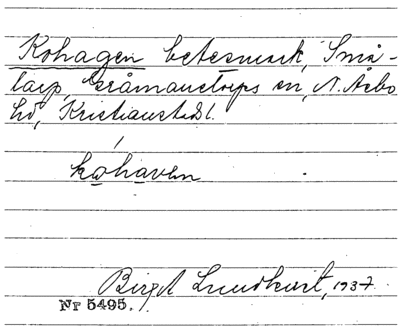 Kohagen betesmark, Små-
tarp, Gråmanstorps sn, N. Åsbo
hd, Kristianstads l.
kohaven
Birgit Lundkvist, 1937.
Nr 5495.